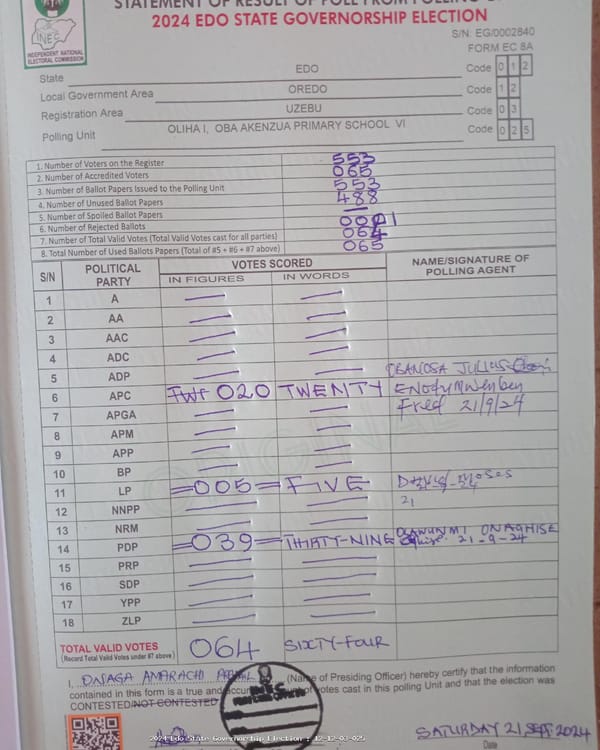 STATEMENT OF RESULT OF POLL FROM POLLING
2024 EDO STATE GOVERNORSHIP ELECTION
INEC
INDEPENDENT NATIONAL
ELECTORAL COMMISSION
S/N: EG/0002840
FORM EC 8A
State EDO Code 0 1 2
Local Government Area OREDO Code 1 2
Registration Area UZEBU Code 0 3
Polling Unit OLIHA I, OBA AKENZUA PRIMARY SCHOOL VI Code 0 2 5
1. Number of Voters on the Register 553
2. Number of Accredited Voters 065
3. Number of Ballot Papers Issued to the Polling Unit 553
4. Number of Unused Ballot Papers 488
5. Number of Spoiled Ballot Papers —
6. Number of Rejected Ballots
7. Number of Total Valid Votes (Total Valid Votes cast for all parties) 064
8. Total Number of Used Ballots Papers (Total of #5 + #6 + #7 above) 065
S/N POLITICAL PARTY VOTES SCORED NAME/SIGNATURE OF POLLING AGENT
IN FIGURES IN WORDS
1 A — —
2 AA — —
3 AAC — —
4 ADC — —
5 ADP — — OBANOSA JULIUS
6 APC 020 TWENTY
7 APGA — — Fred 21/9/24
8 APM — —
9 APP — —
10 BP — —
11 LP =005= FIVE
12 NNPP — — 21
13 NRM — —
14 PDP =039= THIRTY-NINE 21-9-24
15 PRP — —
16 SDP — —
17 YPP — —
18 ZLP — —
TOTAL VALID VOTES 064 SIXTY-FOUR
(Record Total Valid Votes under #7 above)
I, ONAGA AMARACHI (Name of Presiding Officer) hereby certify that the information
contained in this form is a true and of votes cast in this polling Unit and that the election was
CONTESTED/NOT CONTESTED
2024 Edo State Governorship Election : 12-12-03-025
SATURDAY 21 SEPT 2024
Date